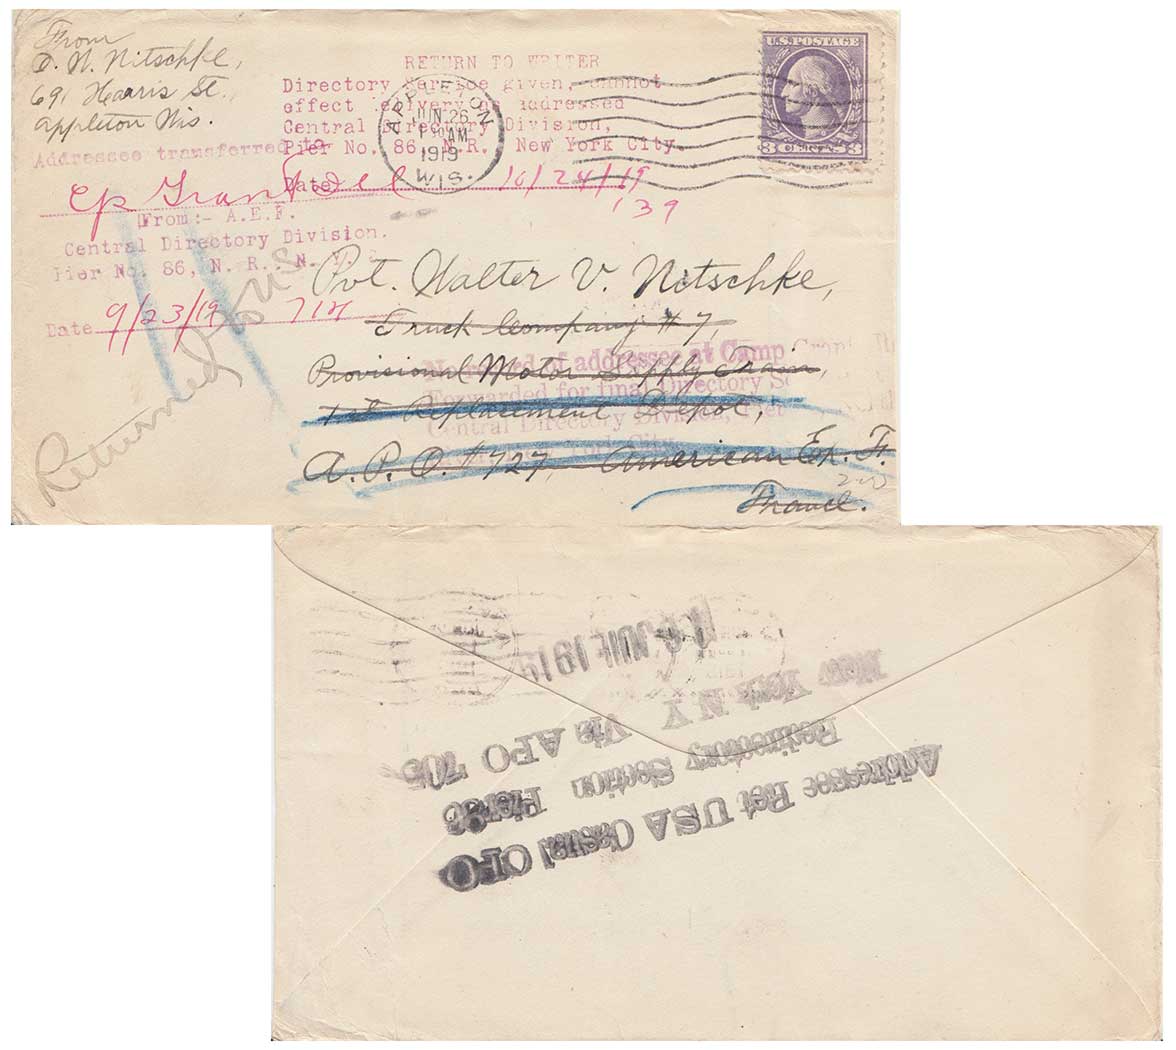 From
D. N. Nitschke,
691 Harris St.
Appleton Wis.
U.S. POSTAGE
3 CENTS 3
APPLETON
JUN 26
AM
1919
WIS.
RETURN TO WRITER
Directory Service given, cannot
effect delivery as addressed
Central Directory Division,
Pier No. 86, N.R. New York City.
Date 10/24/19
139
Addressee transferred to
Cp Grant
From:- A.E.F.
Central Directory Division.
Pier No. 86, N. R., N. Y.
Date 9/23/19 714
Returned to U S
Pvt. Walter V. Nitschke,
Truck Company # 7,
Provisional Motor Supply Train,
1st Replacement Depot,
A. P. O. # 727, American Ex. F.
France.
No record of addressee at Camp Grant
Forwarded for final Directory
Central Directory Division, Pier
York City.
JUIL 1919
Addressee Ret USA Casual OFO
Redirectory Section Pier 86
New York N Y Via APO 705